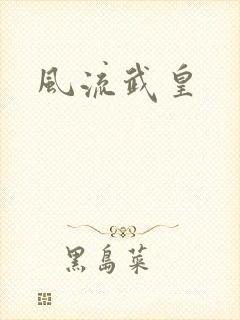 風流武皇
黑島菜